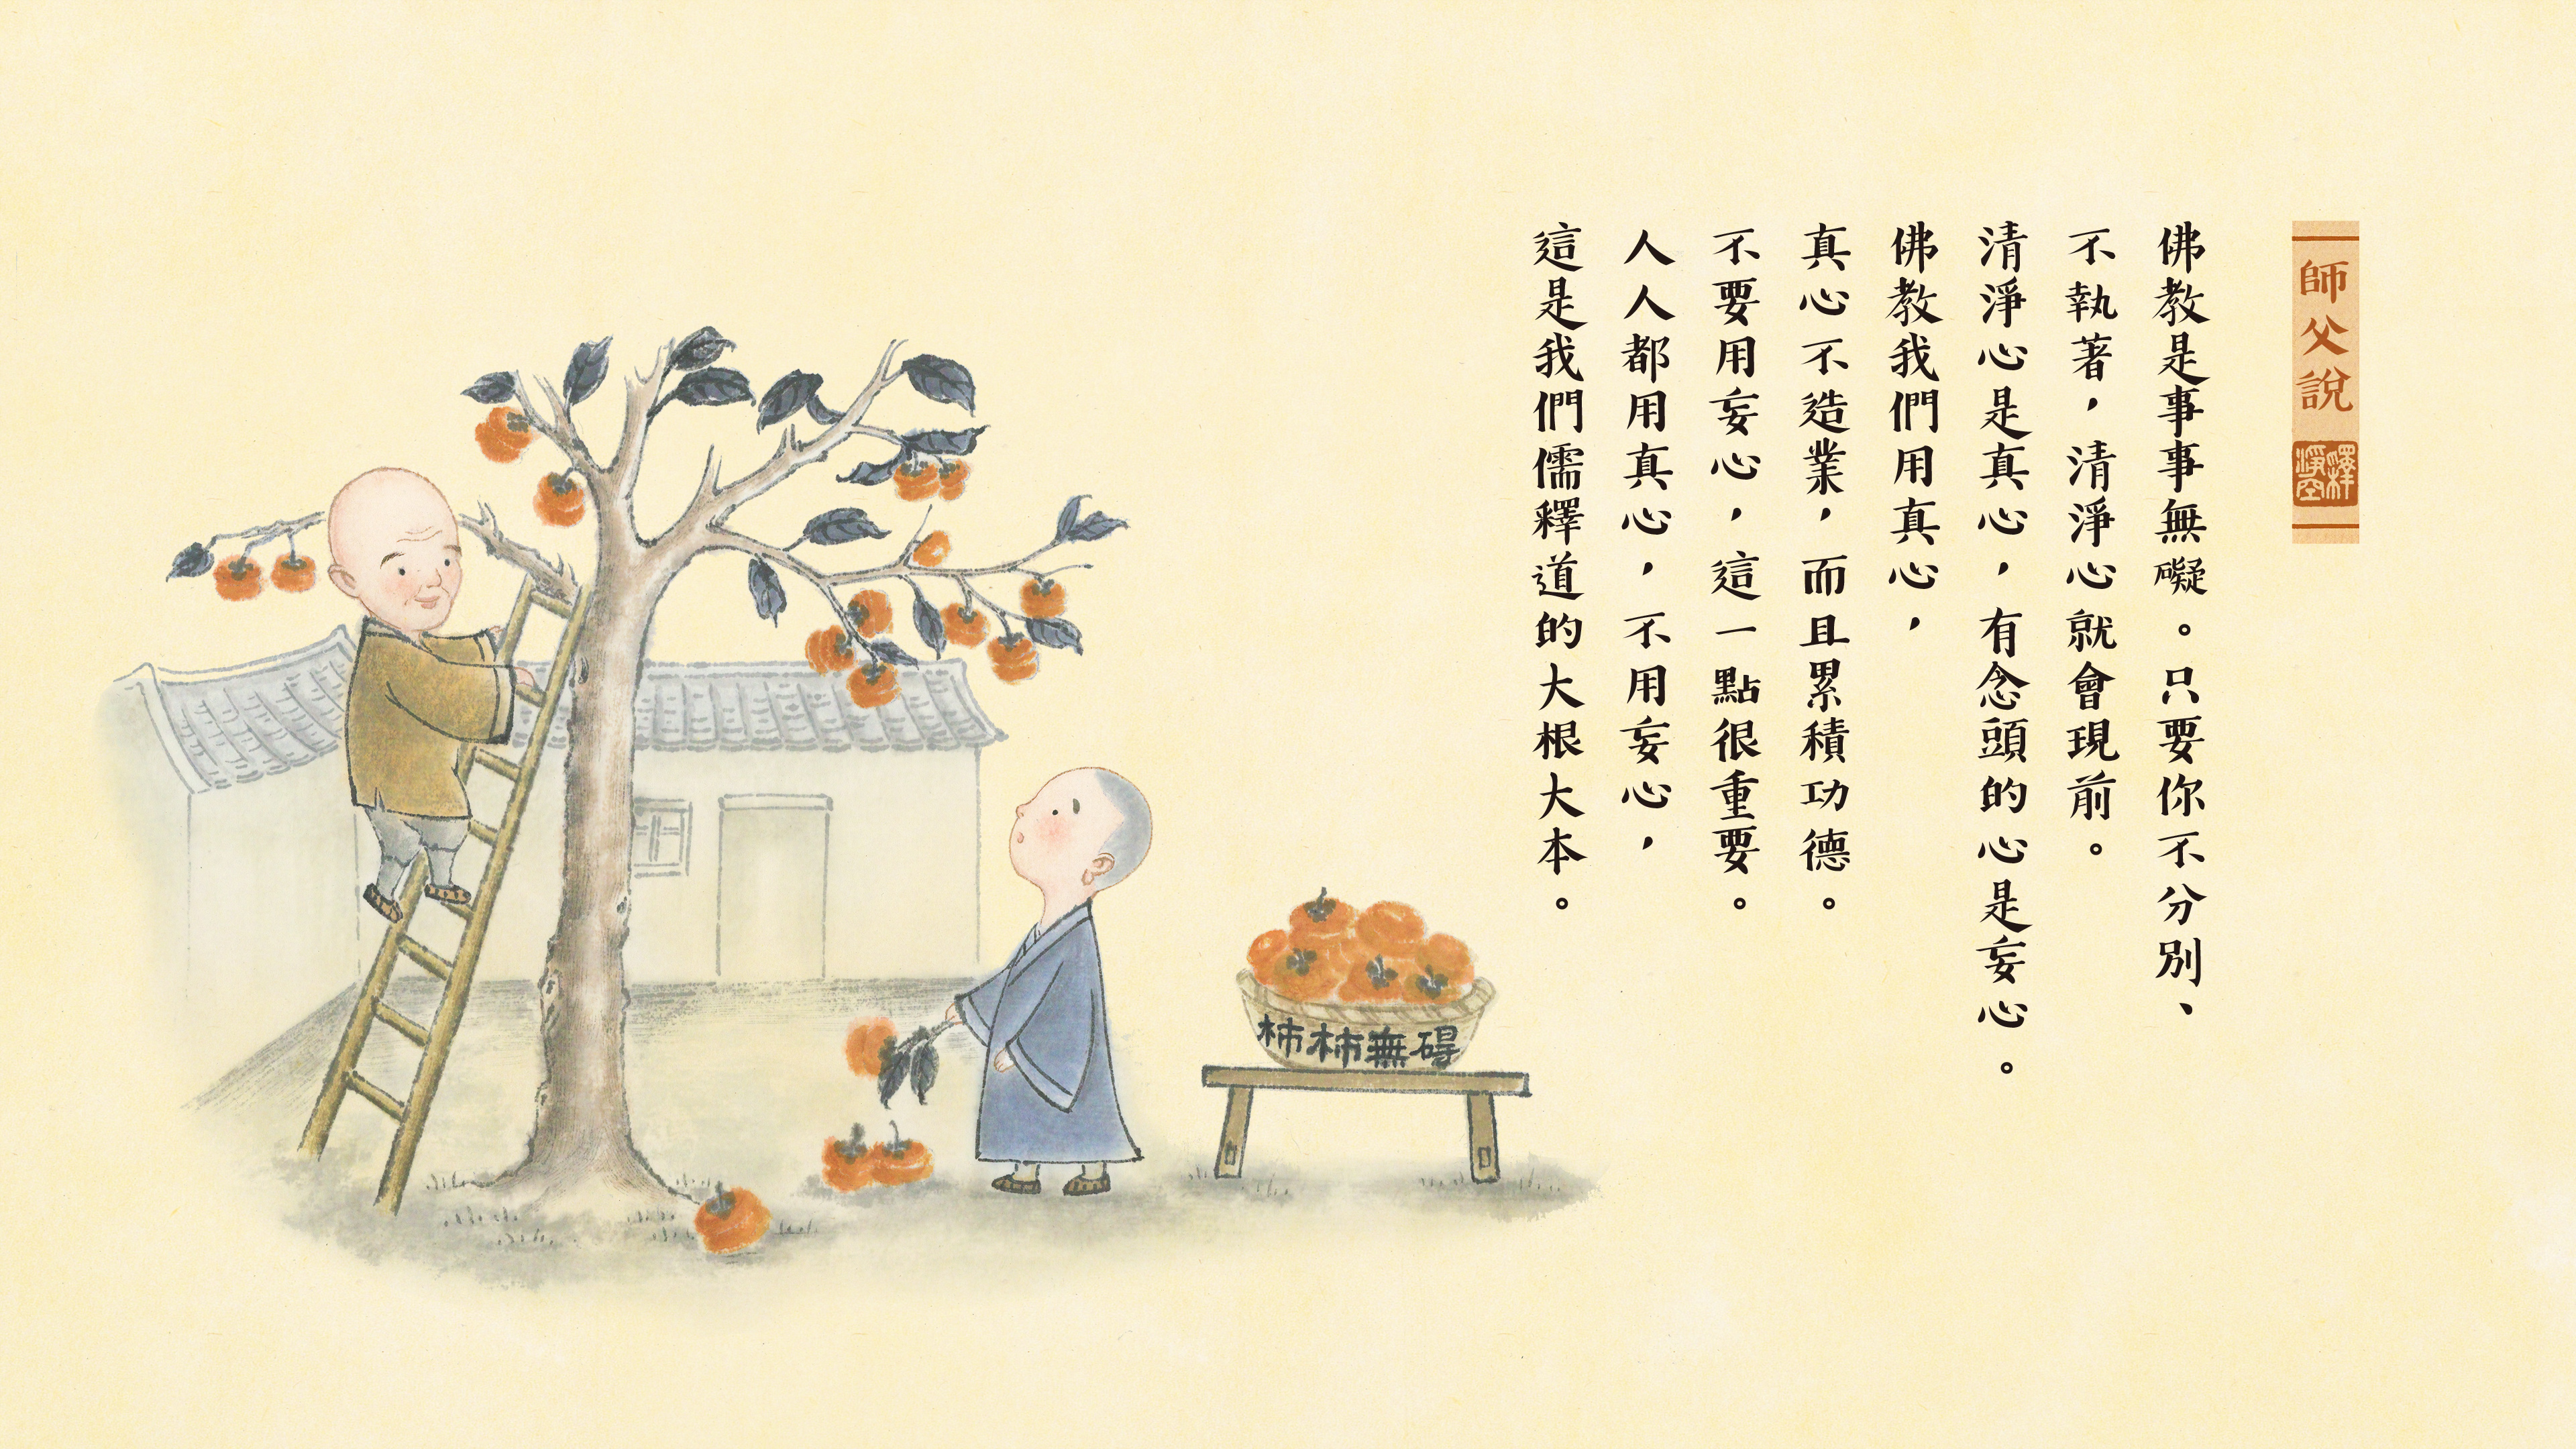 師父說
釋淨空
佛教是事事無礙。只要你不分別、
不執著，清淨心就會現前。
清淨心是真心，有念頭的心是妄心。
佛教我們用真心，
真心不造業，而且累積功德。
不要用妄心，這一點很重要。
人人都用真心，不用妄心，
這是我們儒釋道的大根大本。
柿柿無碍